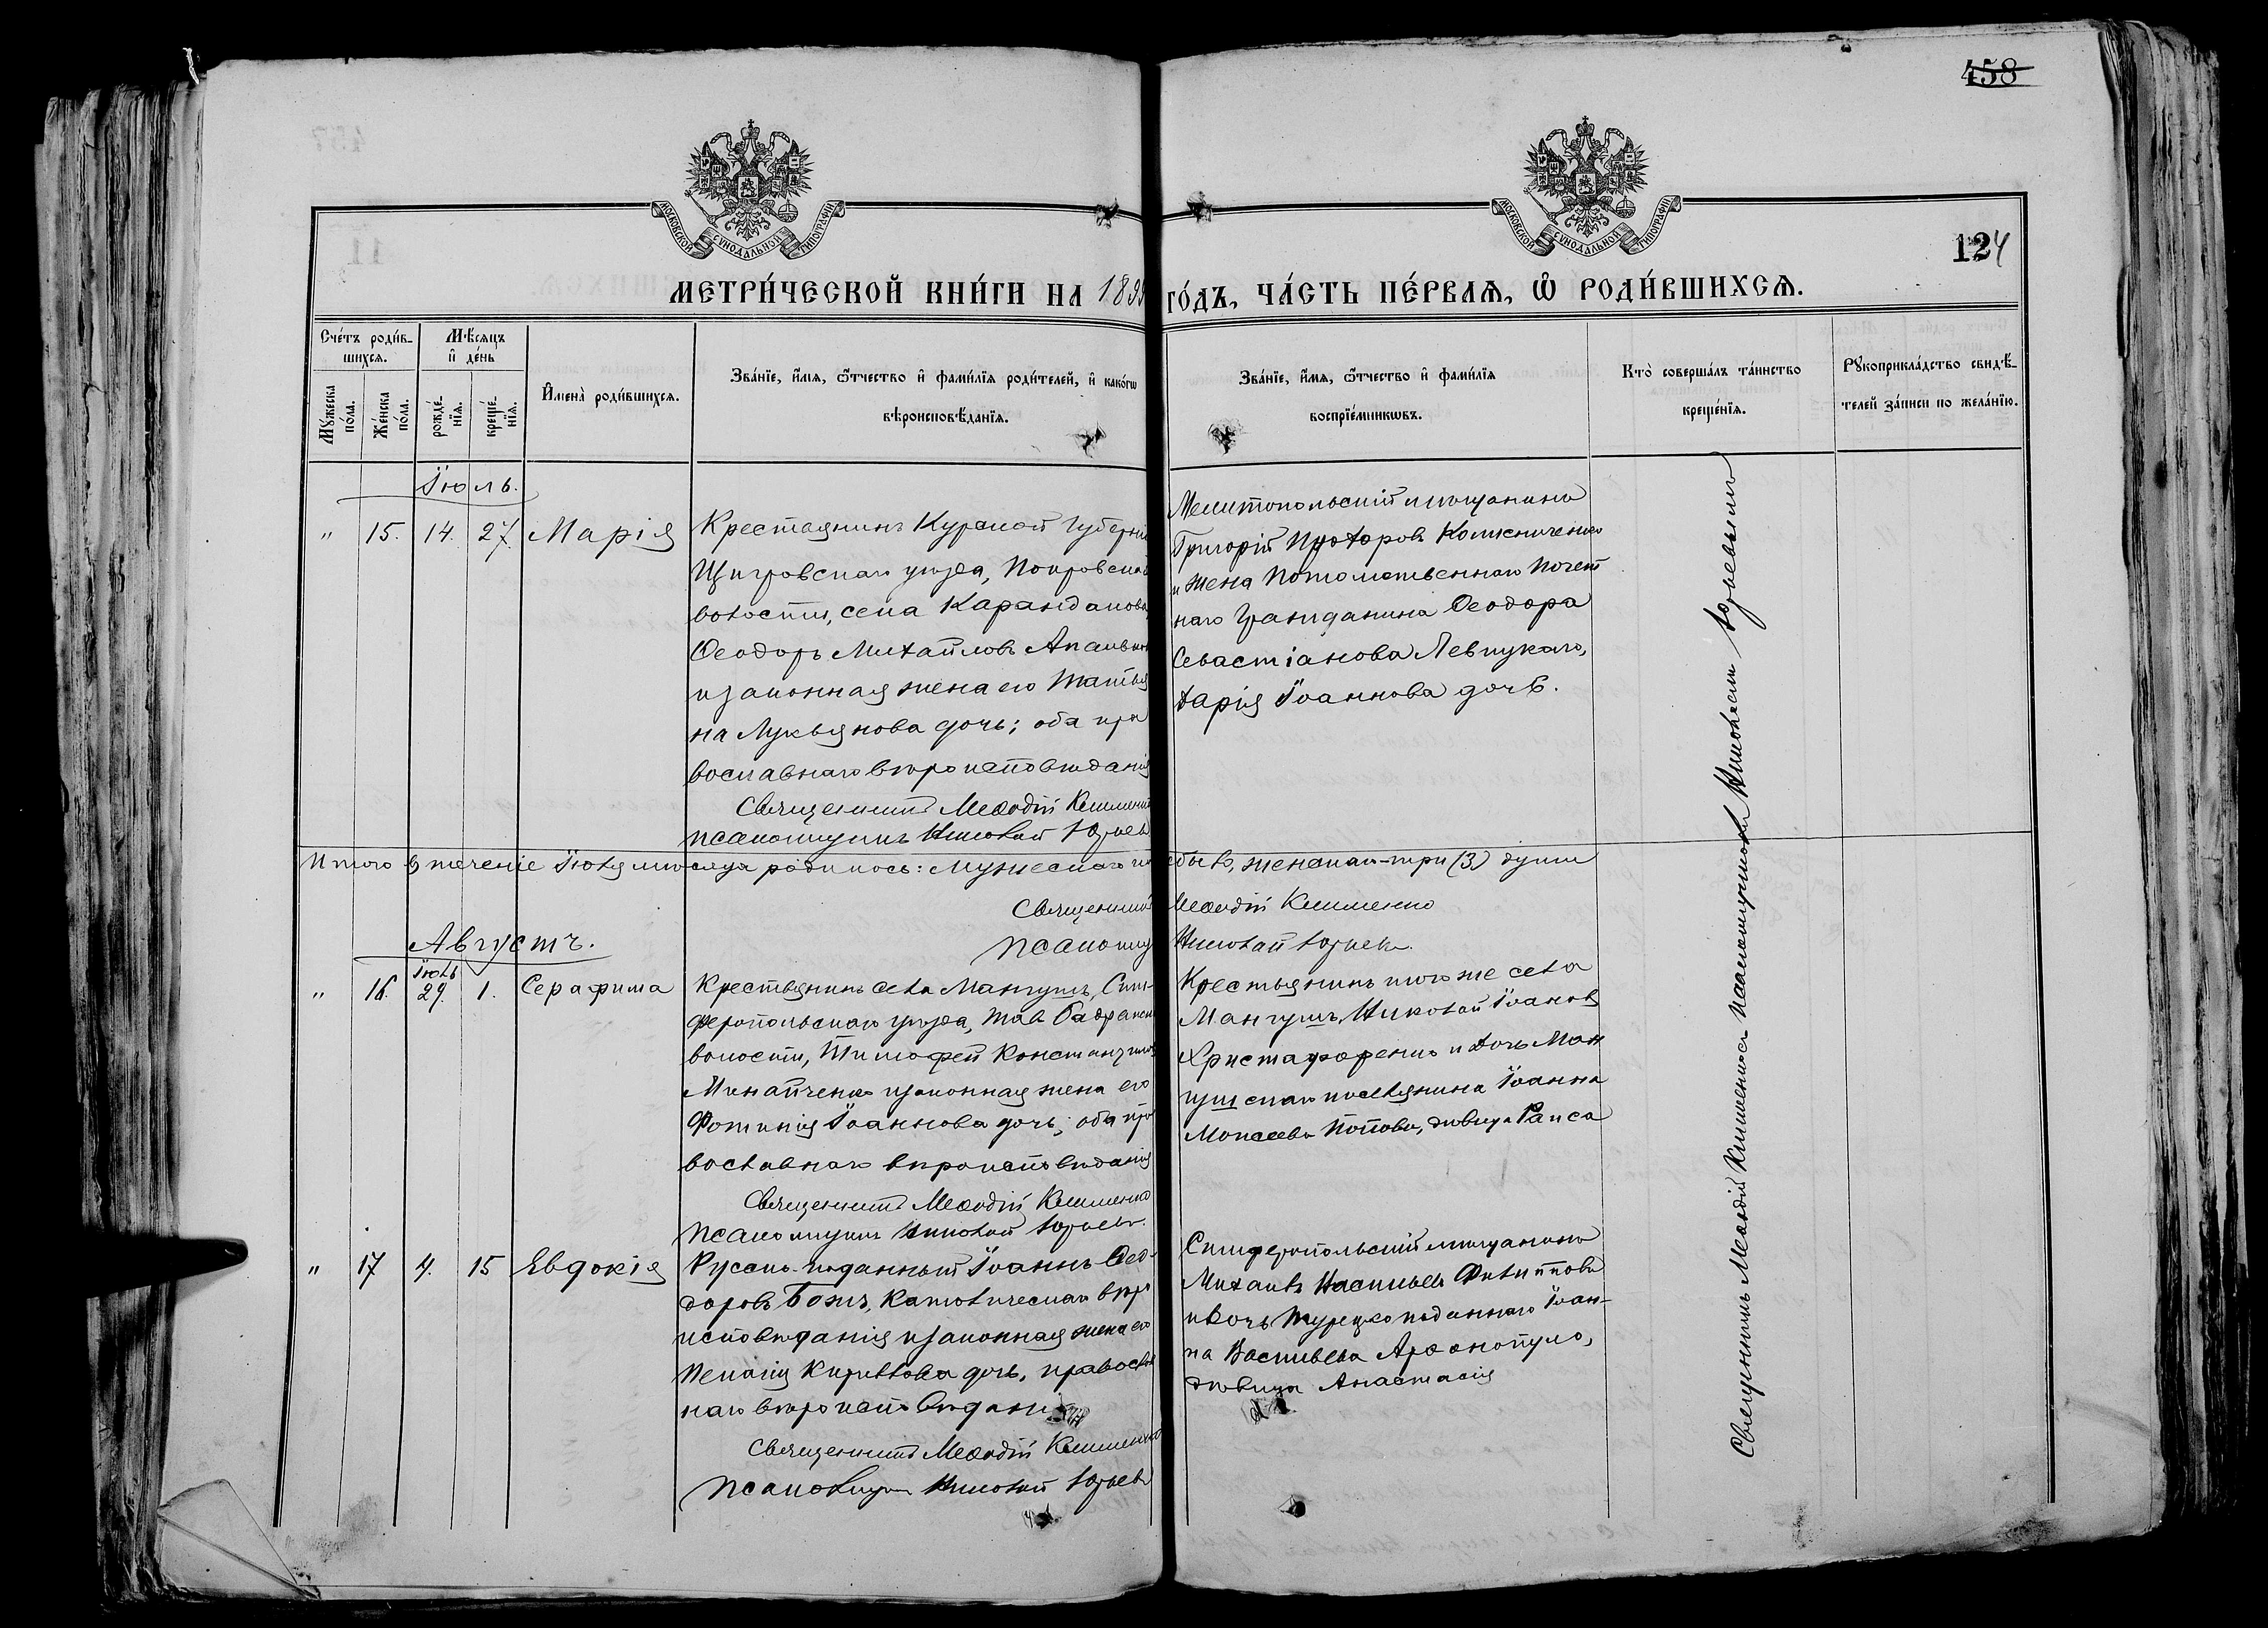 458
МОСКОВСКОЙ СѴНОДАЛЬНОЙ ТИПОГРАФІИ
МОСКОВСКОЙ СѴНОДАЛЬНОЙ ТИПОГРАФІИ
124
МЕТРИ́ЧЕСКОЙ КНИ́ГИ НА 189
ГО́ДЪ, ЧА́СТЬ ПЕ́РВАѦ, Ѽ РОДИ́ВШИХСѦ.
Сче́тъ роди́в-
шихсѧ.
Мꙋжеска по́ла.
Же́нска по́ла.
Мѣ́сѧцъ
и҆ де́нь
рожде́-
нїѧ.
креще́-
нїѧ.
И҆мена̀ роди́вшихсѧ.
Зва́нїе, и҆́мѧ, ѻ҆́тчество и҆ фами́лїѧ роди́телей, и҆ како́гѡ
вѣроисповѣ́данїѧ.
Зва́нїе, и҆́мѧ, ѻ҆́тчество и҆ фами́лїѧ
воспрїе́мникѡвъ.
Кто̀ соверша́лъ та́инство
креще́нїѧ.
Рꙋкоприкла́дство свидѣ́-
телей за́писи по жела́нїю.
Іюль.
" 15. 14. 27. Марія
Крестьянинъ Курской губерніи
Щигровскаго уѣзда, Покровской
волости, села Карандакова
Ѳеодоръ Михайловъ
и законная жена его Татья
на Лукьянова дочь; оба пра
вославнаго вѣроисповѣданія
Священникъ Меѳодій Клименко
псаломщикъ Николай Юрьевъ
Мелитопольскій мѣщанинъ
Григорій Колесниченко
и жена Потомственнаго Почет
наго Гражданина Ѳеодора
Севастіанова Левицкаго,
Дарія Іоаннова дочь.
Итого въ теченіе Іюля мѣсяца родилось: мужескаго не было, женскаго-три (3) души
Священникъ Меѳодій Клименко
псаломщ Николай Юрьевъ.
Августъ.
" 16. Іюль 29. 1. Серафима
Крестьянинъ села Мангушъ, Сим-
феропольскаго уѣзда,
волости, Тимофей Константиновъ
Минайченко и законная жена его
Фотинія Іоаннова дочь; оба пра
вославнаго вѣроисповѣданія
Священникъ Меѳодій Клименко
Псаломщикъ Николай Юрьевъ.
Крестьянинъ того же села
Мангушъ, Николай Іоановъ
Христафоренко и дочь Ман
гушскаго поселянина Іоанна
Моисеева Попова, дѣвица Раиса
" 17 4. 15 Евдокія
Русско-подданный Іоаннъ Ѳео-
доровъ Божъ, Католическаго вѣро
исповѣданія и законная жена его
Пелагія Кириллова дочь, православ
наго вѣроисповѣданія
Священникъ Меѳодій Клименко
Псаломщикъ Николай Юрьевъ
Симферопольскій мѣщанинъ
Михаилъ Васильевъ Филипповъ
и дочь Турецко подданнаго Іоан-
на Васильева
дѣвица Анастасія
Священникъ Меѳодій Клименко съ псаломщикомъ Николаемъ Юрьевымъ